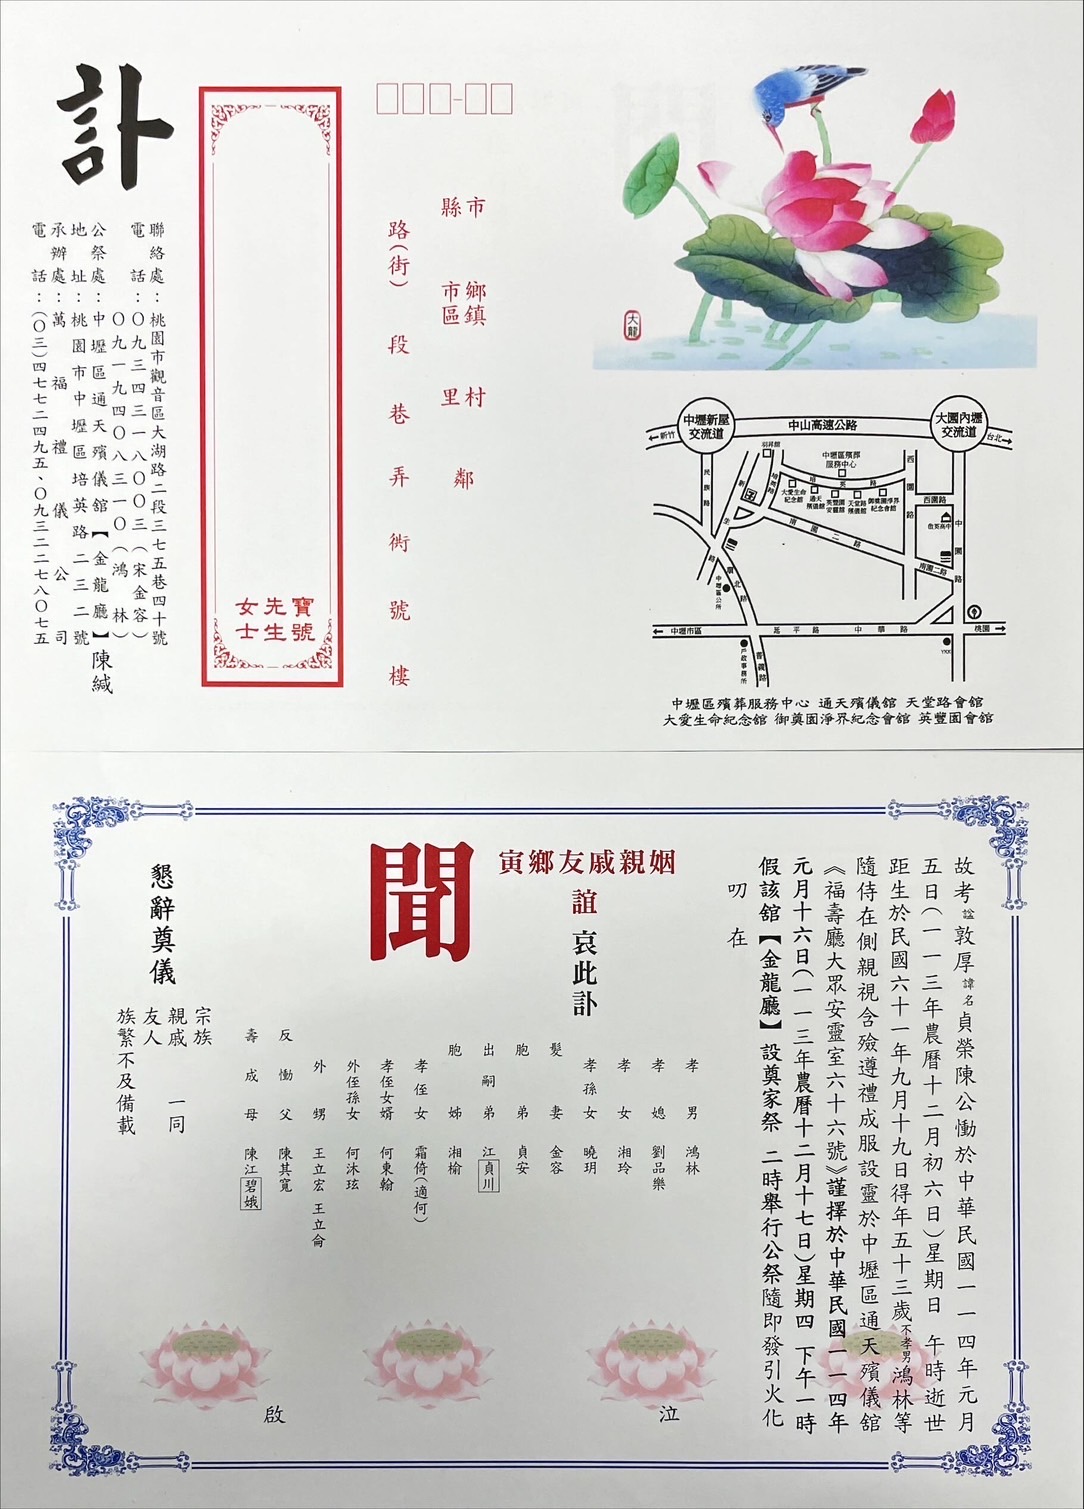 訃
聯絡處：桃園市觀音區大湖路二段三七五巷四十號
電話：〇九三四三一八〇〇三（宋金容）
〇九一九四〇八三一〇（鴻林）
公祭處：中壢區通天殯儀館【金龍廳】陳緘
地址：桃園市中壢區培英路二三二號
承辦處：萬福禮儀公司
電話：（〇三）四七七二四九五、〇九三二二七八〇七五
寶號
先生
女士
市 鄉鎮 村 鄰
縣 市區 里
路（街） 段 巷 弄 衖 號 樓
大龍
中壢新屋
交流道
中山高速公路
大園內壢
交流道
←新竹
台北→
羽昇館
中壢區殯葬
服務中心
民族路
培英路
培英路
大愛生命
紀念館
通天
殯儀館
英豐園
安靈館
天堂路
殯儀館
御奠園淨界
紀念會館
西園路
西園路
啟英高中
新生路
南園二路
南園二路
中園路
環北路
中壢區公所
←中壢市區
延平路
中華路
桃園→
戶政事務所
普義路
YKK
中壢區殯葬服務中心 通天殯儀館 天堂路會館
大愛生命紀念館 御奠園淨界紀念會館 英豐園會館
故考諡敦厚諱名貞榮陳公慟於中華民國一一四年元月
五日（一一三年農曆十二月初六日）星期日 午時逝世
距生於民國六十一年九月十九日得年五十三歲不孝男鴻林等
隨侍在側親視含殮遵禮成服設靈於中壢區通天殯儀館
《福壽廳大眾安靈室六十六號》謹擇於中華民國一一四年
元月十六日（一一三年農曆十二月十七日）星期四 下午一時
假該館【金龍廳】設奠家祭 二時舉行公祭隨即發引火化
叨在
姻親戚友鄉寅
誼 哀此訃
聞
孝男 鴻林
孝媳 劉品樂
孝女 湘玲
孝孫女 曉玥
髮妻 金容
胞弟 貞安
出嗣弟 江貞川
胞姊 湘榆
孝侄女 霜倚（適何）
孝侄女婿 何東翰
外侄孫女 何沐玹
外甥 王立宏 王立侖
反慟父 陳其寬
壽成母 陳江碧娥
泣
啟
宗族
親戚 一同
友人
族繁不及備載
懇辭奠儀